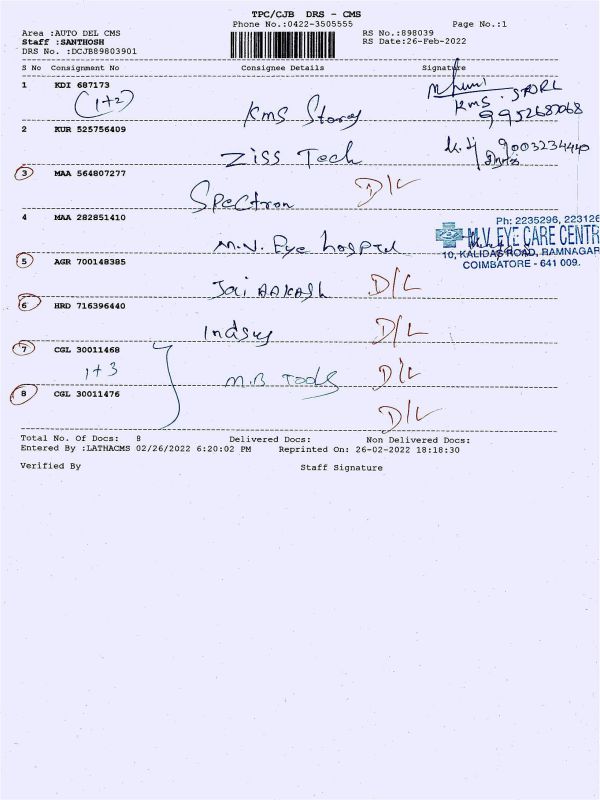 TPC/CJB DRS - CMS
Phone No.:0422-3505555 Page No.:1
Area :AUTO DEL CMS RS No.:898039
Staff :SANTHOSH RS Date:26-Feb-2022
DRS No. :DCJB89803901
S No Consignment No Consignee Details Signature
1 KDI 687173
(1+2) KMS Storey KMS . STORL
9952687068
2 KUR 525756409
Ziss Tech 9003234440
3 MAA 564807277
Spectron D/L
4 MAA 282851410 Ph: 2235296, 223126
M.V. Eye hosptel M.V. EYE CARE CENTR
10, KALIDAS ROAD, RAMNAGAR
COIMBATORE - 641 009.
5 AGR 700148385
Jai AAKASH D/L
6 HRD 716396440
Indsys D/L
7 CGL 30011468
1+3 M.B Tools D/L
8 CGL 30011476
D/L
Total No. Of Docs: 8 Delivered Docs: Non Delivered Docs:
Entered By :LATHACMS 02/26/2022 6:20:02 PM Reprinted On: 26-02-2022 18:18:30
Verified By Staff Signature